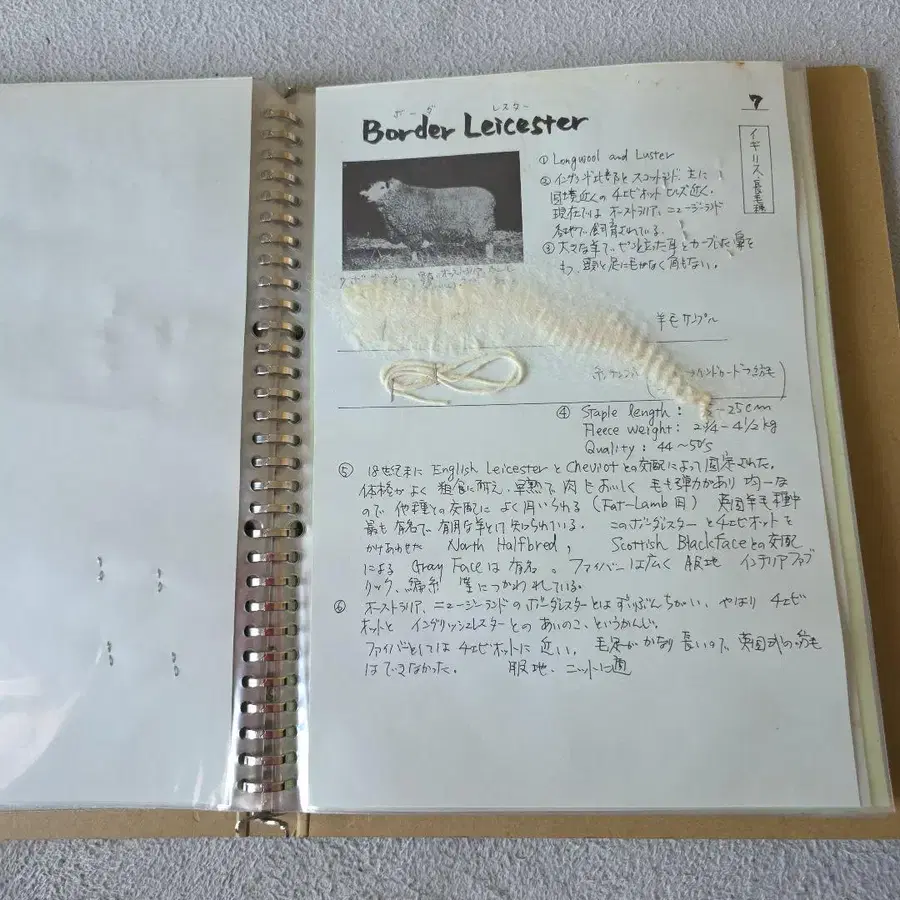 7
ボーダ レスター
Border Leicester
イギリス、長毛種
① Longwool and Luster
② イングランド北部とスコットランド 主に
国境近くの チェビオット ヒルズ近く.
現在では オーストラリア、ニュージーランド
各地で飼育されている.
③ 大きな羊で、ピンと立った耳とカーブした鼻を
もつ 頭と足に毛がなく角もない。
羊毛サンプル
糸サンプル ハンドカード 紡毛
④ Staple length: -25cm
Fleece weight: 2 3/4 - 4 1/2 kg
Quality: 44~50's
⑤ 18世紀末に English Leicester と Cheviot との交配によって固定された。
体格がよく 粗食に耐え、早熟で 肉もおいしく 毛も弾力があり 均一な
ので 他種との交配に よく用いられる (Fat-Lamb用) 英国羊毛種中
最も 有名で、有用な羊として知られている. このボーダレスター とチェビオットを
かけあわせた North Halfbred, Scottish Blackface との交配
による Gray Face は 有名。ファイバーは広く 服地 インテリアファブ
リック、編糸 等につかわれている.
⑥ オーストラリア、ニュージーランドのボーダレスターとは ずいぶんちがい、やはり チェビ
オットと イングリッシュレスターとの あいのこ、というかんじ。
ファイバーとしては チェビオットに 近い, 毛足が かなり 長いので、英国式の紡毛
はできなかった. 服地、ニットに適